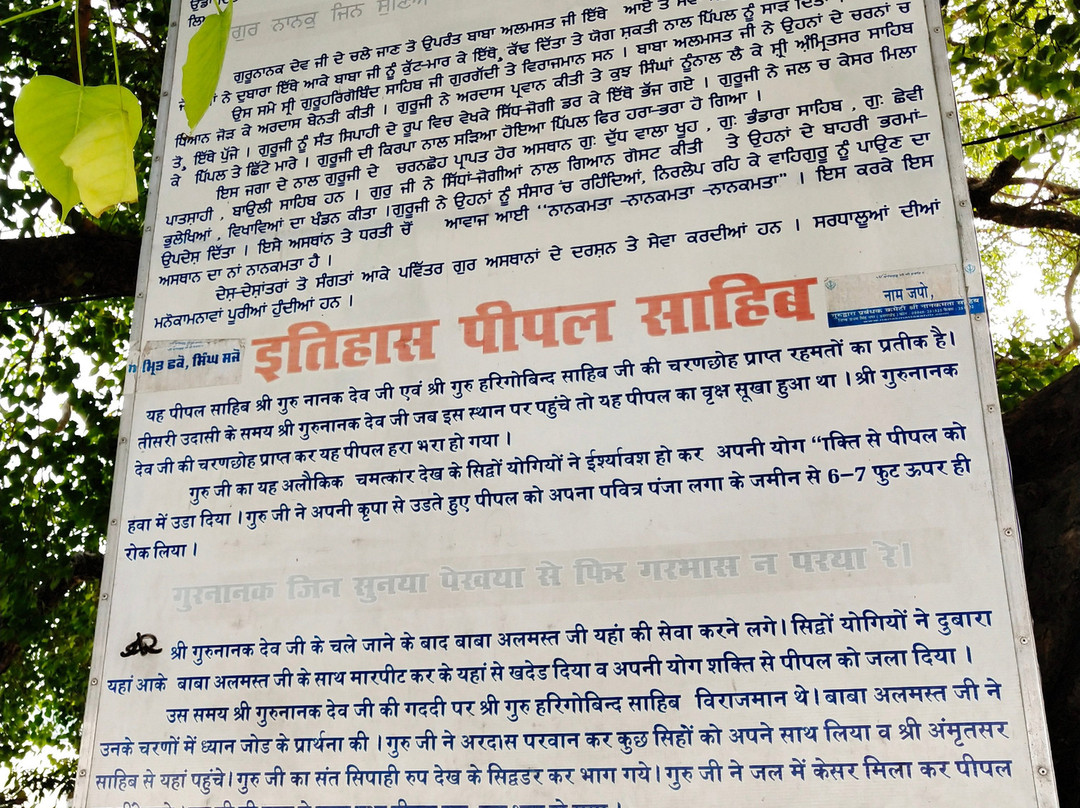 ਗੁਰ ਨਾਨਕੁ ਜਿਨ ਸੁਣਿਆ
ਗੁਰੂਨਾਨਕ ਦੇਵ ਜੀ ਦੇ ਚਲੇ ਜਾਣ ਤੋ ਉਪਰੰਤ ਬਾਬਾ ਅਲਮਸਤ ਜੀ ਇੱਥੇ ਆਏ ਤੇ
ਨੇ ਦੁਬਾਰਾ ਇੱਥੇ ਆਕੇ ਬਾਬਾ ਜੀ ਨੂੰ ਕੁੱਟ-ਮਾਰ ਕੇ ਇੱਥੋਂ, ਕੱਢ ਦਿੱਤਾ ਤੇ ਯੋਗ ਸ਼ਕਤੀ ਨਾਲ ਪਿੱਪਲ ਨੂੰ ਸਾੜ ਦਿੱਤਾ
ਉਸ ਸਮੇ ਸ੍ਰੀ ਗੁਰੂਹਰਿਗੋਬਿੰਦ ਸਾਹਿਬ ਜੀ ਗੁਰਗੱਦੀ ਤੇ ਵਿਰਾਜਮਾਨ ਸਨ । ਬਾਬਾ ਅਲਮਸਤ ਜੀ ਨੇ ਉਹਨਾਂ ਦੇ ਚਰਨਾਂ ਚ
ਧਿਆਨ ਜੋੜ ਕੇ ਅਰਦਾਸ ਬੇਨਤੀ ਕੀਤੀ । ਗੁਰੂਜੀ ਨੇ ਅਰਦਾਸ ਪ੍ਰਵਾਨ ਕੀਤੀ ਤੇ ਕੁਝ ਸਿੰਘਾਂ ਨੂੰਨਾਲ ਲੈ ਕੇ ਸ੍ਰੀ ਅੰਮ੍ਰਿਤਸਰ ਸਾਹਿਬ
ਤੋਂ, ਇੱਥੇ ਪੁੱਜੇ । ਗੁਰੂਜੀ ਨੂੰ ਸੰਤ ਸਿਪਾਹੀ ਦੇ ਰੂਪ ਵਿਚ ਵੇਖਕੇ ਸਿੱਧ-ਜੋਗੀ ਡਰ ਕੇ ਇੱਥੋ ਭੱਜ ਗਏ । ਗੁਰੂਜੀ ਨੇ ਜਲ ਚ ਕੇਸਰ ਮਿਲਾ
ਕੇ ਪਿੱਪਲ ਤੇ ਛਿੱਟੇ ਮਾਰੇ । ਗੁਰੂਜੀ ਦੀ ਕਿਰਪਾ ਨਾਲ ਸੜਿਆ ਹੋਇਆ ਪਿੱਪਲ ਫਿਰ ਹਰਾ-ਭਰਾ ਹੋ ਗਿਆ ।
ਇਸ ਜਗਾ ਦੇ ਨਾਲ ਗੁਰੂਜੀ ਦੇ ਚਰਨਛੋਹ ਪ੍ਰਾਪਤ ਹੋਰ ਅਸਥਾਨ ਗੁ: ਦੁੱਧ ਵਾਲਾ ਖੂਹ , ਗੁ: ਭੰਡਾਰਾ ਸਾਹਿਬ , ਗੁ: ਛੇਵੀ
ਪਾਤਸ਼ਾਹੀ , ਬਾਉਲੀ ਸਾਹਿਬ ਹਨ । ਗੁਰੂ ਜੀ ਨੇ ਸਿੱਧਾਂ-ਜੋਗੀਆਂ ਨਾਲ ਗਿਆਨ ਗੋਸਟ ਕੀਤੀ ਤੇ ਉਹਨਾਂ ਦੇ ਬਾਹਰੀ ਭਰਮਾਂ-
ਭੁਲੇਖਿਆਂ , ਵਿਖਾਵਿਆਂ ਦਾ ਖੰਡਨ ਕੀਤਾ ।ਗੁਰੂਜੀ ਨੇ ਉਹਨਾਂ ਨੂੰ ਸੰਸਾਰ 'ਚ ਰਹਿੰਦਿਆਂ, ਨਿਰਲੇਪ ਰਹਿ ਕੇ ਵਾਹਿਗੁਰੂ ਨੂੰ ਪਾਉਣ ਦਾ
ਉਪਦੇਸ਼ ਦਿੱਤਾ । ਇਸੇ ਅਸਥਾਂਨ ਤੇ ਧਰਤੀ ਚੋਂ ਆਵਾਜ ਆਈ "ਨਾਨਕਮਤਾ -ਨਾਨਕਮਤਾ" । ਇਸ ਕਰਕੇ ਇਸ
ਅਸਥਾਨ ਦਾ ਨਾਂ ਨਾਨਕਮਤਾ ਹੈ ।
ਦੇਸ਼-ਦੇਸ਼ਾਂਤਰਾਂ ਤੋ ਸੰਗਤਾਂ ਆਕੇ ਪਵਿੱਤਰ ਗੁਰ ਅਸਥਾਨਾਂ ਦੇ ਦਰਸ਼ਨ ਤੇ ਸੇਵਾ ਕਰਦੀਆਂ ਹਨ । ਸਰਧਾਲੂਆਂ ਦੀਆਂ
ਮਨੋਕਾਮਨਾਵਾਂ ਪੂਰੀਆਂ ਹੁੰਦੀਆਂ ਹਨ ।
ਮ੍ਰਿਤ ਛਕੋ, ਸਿੰਘ ਸਜੋ
इतिहास पीपल साहिब
नाम जपो,
यह पीपल साहिब श्री गुरु नानक देव जी एवं श्री गुरु हरिगोबिन्द साहिब जी की चरणछोह प्राप्त रहमतों का प्रतीक है।
तीसरी उदासी के समय श्री गुरुनानक देव जी जब इस स्थान पर पहुंचे तो यह पीपल का वृक्ष सूखा हुआ था । श्री गुरुनानक
देव जी की चरणछोह प्राप्त कर यह पीपल हरा भरा हो गया ।
गुरु जी का यह अलौकिक चमत्कार देख के सिद्वों योगियों ने ईर्श्यावश हो कर अपनी योग “ाक्ति से पीपल को
हवा में उडा दिया । गुरु जी ने अपनी कृपा से उडते हुए पीपल को अपना पवित्र पंजा लगा के जमीन से 6-7 फुट ऊपर ही
रोक लिया ।
गुरनानक जिन सुनया पेखया से फिर गरभास न परया रे।
श्री गुरुनानक देव जी के चले जाने के बाद बाबा अलमस्त जी यहां की सेवा करने लगे। सिद्वों योगियों ने दुबारा
यहां आके बाबा अलमस्त जी के साथ मारपीट कर के यहां से खदेड दिया व अपनी योग शक्ति से पीपल को जला दिया ।
उस समय श्री गुरुनानक देव जी की गददी पर श्री गुरु हरिगोबिन्द साहिब विराजमान थे। बाबा अलमस्त जी ने
उनके चरणों में ध्यान जोड के प्रार्थना की । गुरु जी ने अरदास परवान कर कुछ सिहों को अपने साथ लिया व श्री अंमृतसर
साहिब से यहां पहुंचे। गुरु जी का संत सिपाही रुप देख के सिद्वडर कर भाग गये। गुरु जी ने जल में केसर मिला कर पीपल